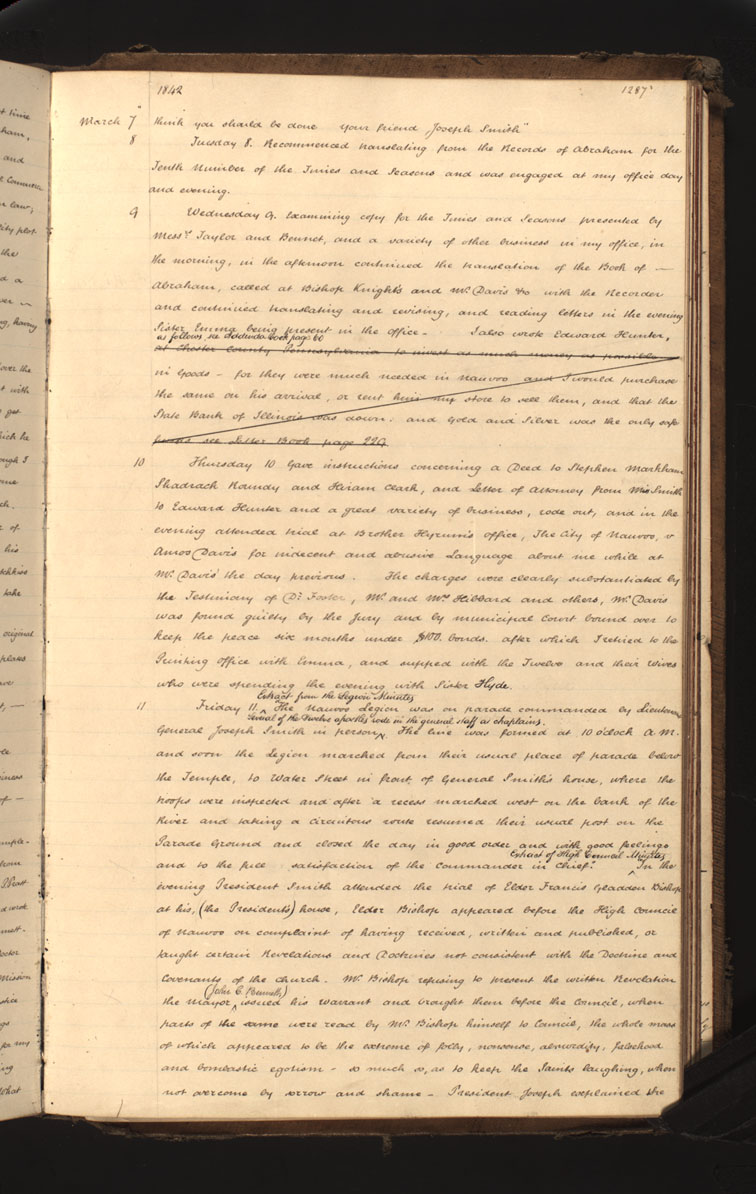 1842 1287
March 7 think you should be done your friend Joseph Smith"
8 Tuesday 8. Recommenced translating from the Records of Abraham for the
Tenth Number of the Times and Seasons and was engaged at my office day
and evening.
9 Wednesday 9. Examining copy for the Times and Seasons presented by
Messrs. Taylor and Bennet, and a variety of other business in my office, in
the morning, in the afternoon continued the translation of the Book of —
Abraham, called at Bishop Knight's and Mr. Davis &c with the Recorder
and continued translating and revising, and reading letters in the evening
Sister Emma being present in the office - I also wrote Edward Hunter,
as follows see Addenda Book page 60
at Chester County Pennsylvania to invest as much money as possible
in Goods - for they were much needed in Nauvoo and I would purchase
the same on his arrival, or rent him my store to sell them, and that the
State Bank of Illinois was down. and Gold and Silver was the only safe
see Letter Book page 229
10 Thursday 10 Gave instructions concerning a Deed to Stephen Markham
Shadrach Roundy and Hiram Clark, and Letter of Attorney from Mrs Smith
to Edward Hunter and a great variety of business, rode out, and in the
evening attended trial at Brother Hyrum's office, The City of Nauvoo, v
Amos Davis for indecent and abusive Language about me while at
Mr. Davis' the day previous. The charges were clearly substantiated by
the Testimony of Dr. Foster, Mr. and Mrs. Hibbard and others, Mr. Davis
was found guilty by the Jury and by municipal Court bound over to
keep the peace six months under $100. bonds. after which I retired to the
Printing office with Emma, and supped with the Twelve and their wives
who were spending the evening with Sister Hyde.
Extract from the Legion Minutes
11 Friday 11. The Nauvoo Legion was on parade commanded by Lieutenant
Several of the Twelve apostles rode in the general staff as chaplains.
General Joseph Smith in person. The line was formed at 10 o'clock A M.
and soon the Legion marched from their usual place of parade below
the Temple, to Water Street in front of General Smith's house, where the
troops were inspected and after a recess marched west on the bank of the
River and taking a circuitous route resumed their usual post on the
Parade Ground and closed the day in good order and with good feelings
Extract of High Council Minutes
and to the full satisfaction of the Commander in Chief." In the
evening President Smith attended the trial of Elder Francis Gladden Bishop
at his, (the President's) house, Elder Bishop appeared before the High Council
of Nauvoo on complaint of having received, written and published, or
taught certain Revelations and Doctrines not consistent with the Doctrine and
Covenants of the church. Mr. Bishop refusing to present the written Revelation
(John C. Bennett)
the Mayor issued his warrant and brought them before the Council, when
parts of the same were read by Mr. Bishop himself to Council, the whole mass
of which appeared to be the extreme of folly, nonsense, absurdity, falsehood
and bombastic egotism - so much so, as to keep the Saints laughing, when
not overcome by sorrow and shame - President Joseph explained the